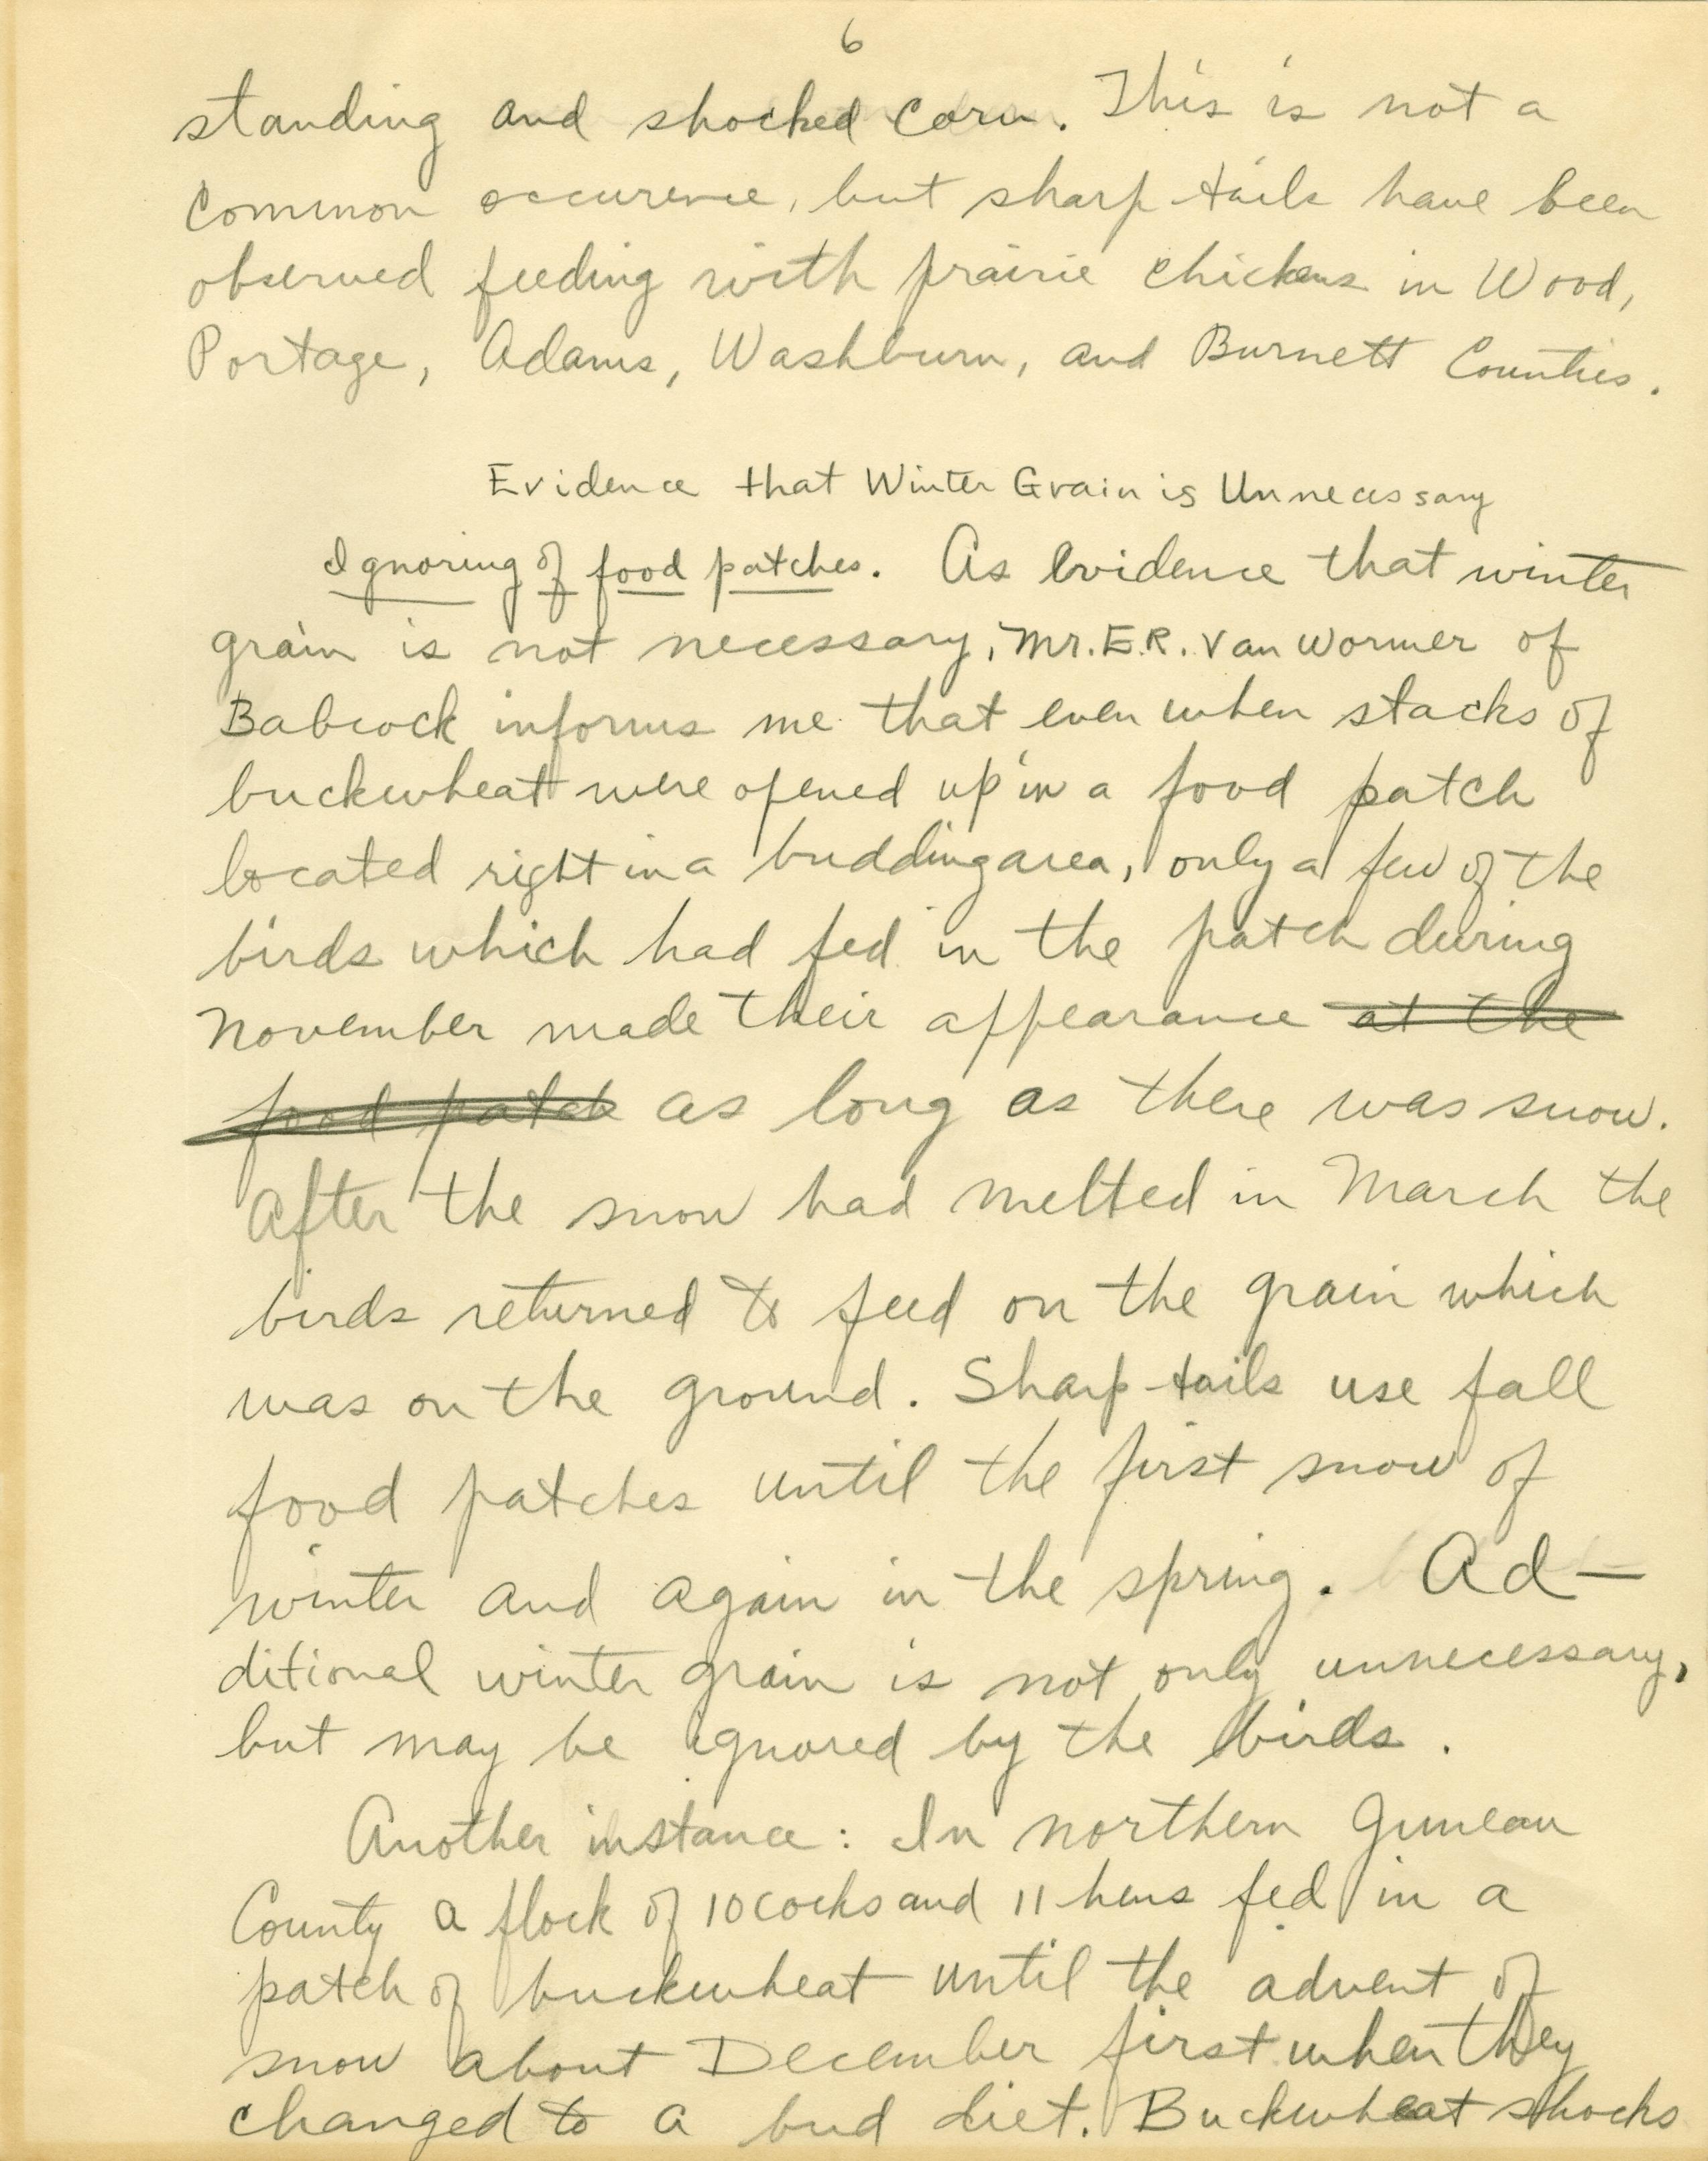 6
standing and shocked corn. This is not a
common occurence, but sharp-tails have been
observed feeding with prairie chickens in Wood,
Portage, Adams, Washburn, and Burnett Counties.
Evidence that Winter Grain is Unnecessary
Ignoring of food patches. As evidence that winter
grain is not necessary, Mr. E.R. Van Wormer of
Babcock informs me that even when stacks of
buckwheat were opened up in a food patch
located right in a budding area, only a few of the
birds which had fed in the patch during
November made their appearance at the
food patch as long as there was snow.
After the snow had melted in March the
birds returned to feed on the grain which
was on the ground. Sharp-tails use fall
food patches until the first snow of
winter and again in the spring. Ad-
ditional winter grain is not only unnecessary,
but may be ignored by the birds.
Another instance: In northern Juneau
County a flock of 10 cocks and 11 hens fed in a
patch of buckwheat until the advent of
snow about December first when they
changed to a bud diet. Buckwheat shocks